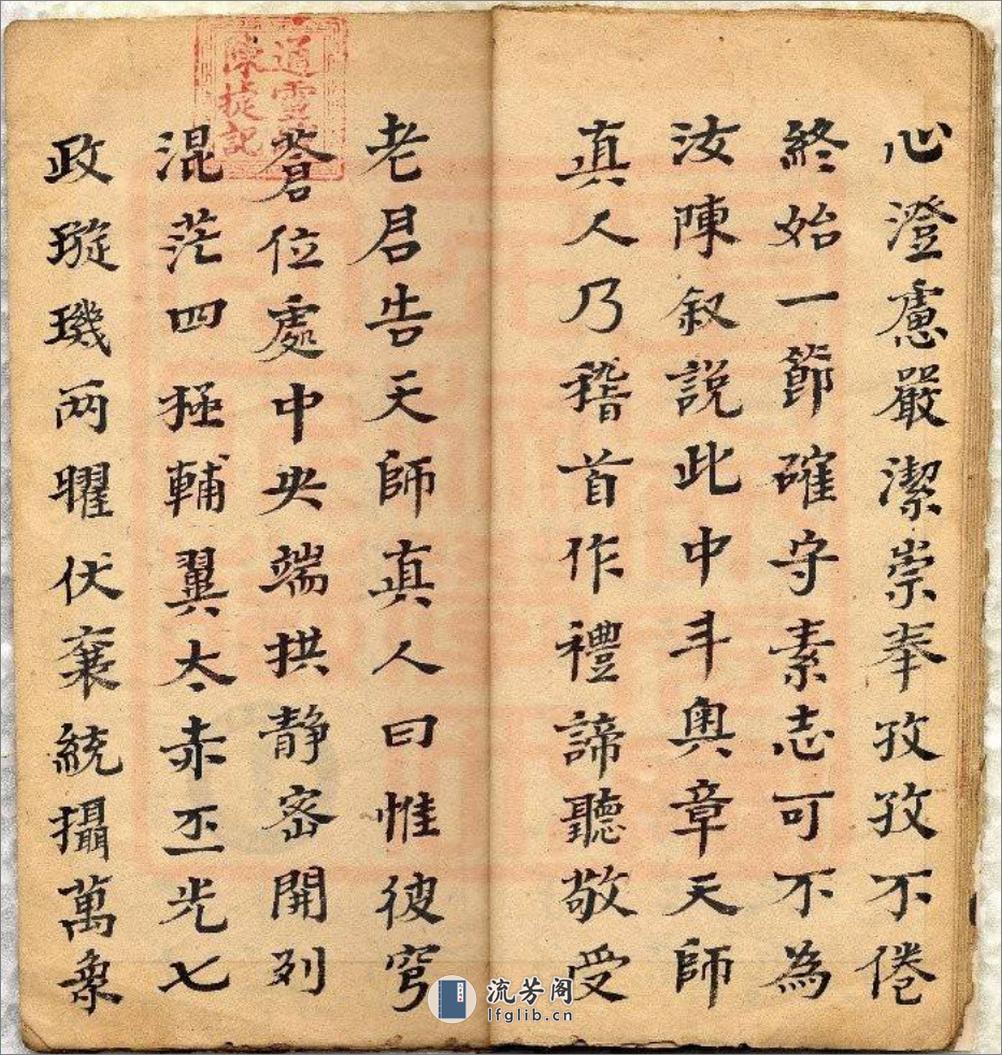 心澄慮嚴潔崇奉孜孜不倦
終始一節確守素志可不為
汝陳叙說此中斗奥章天師
真人乃稽首作禮諦聽敬受
老君告天師真人曰惟彼穹
蒼位處中央端拱靜密開列
混茫四極輔翼太赤丕光七
政璇璣兩曜伏棄統攝萬象
流芳阁
lfglib.cn